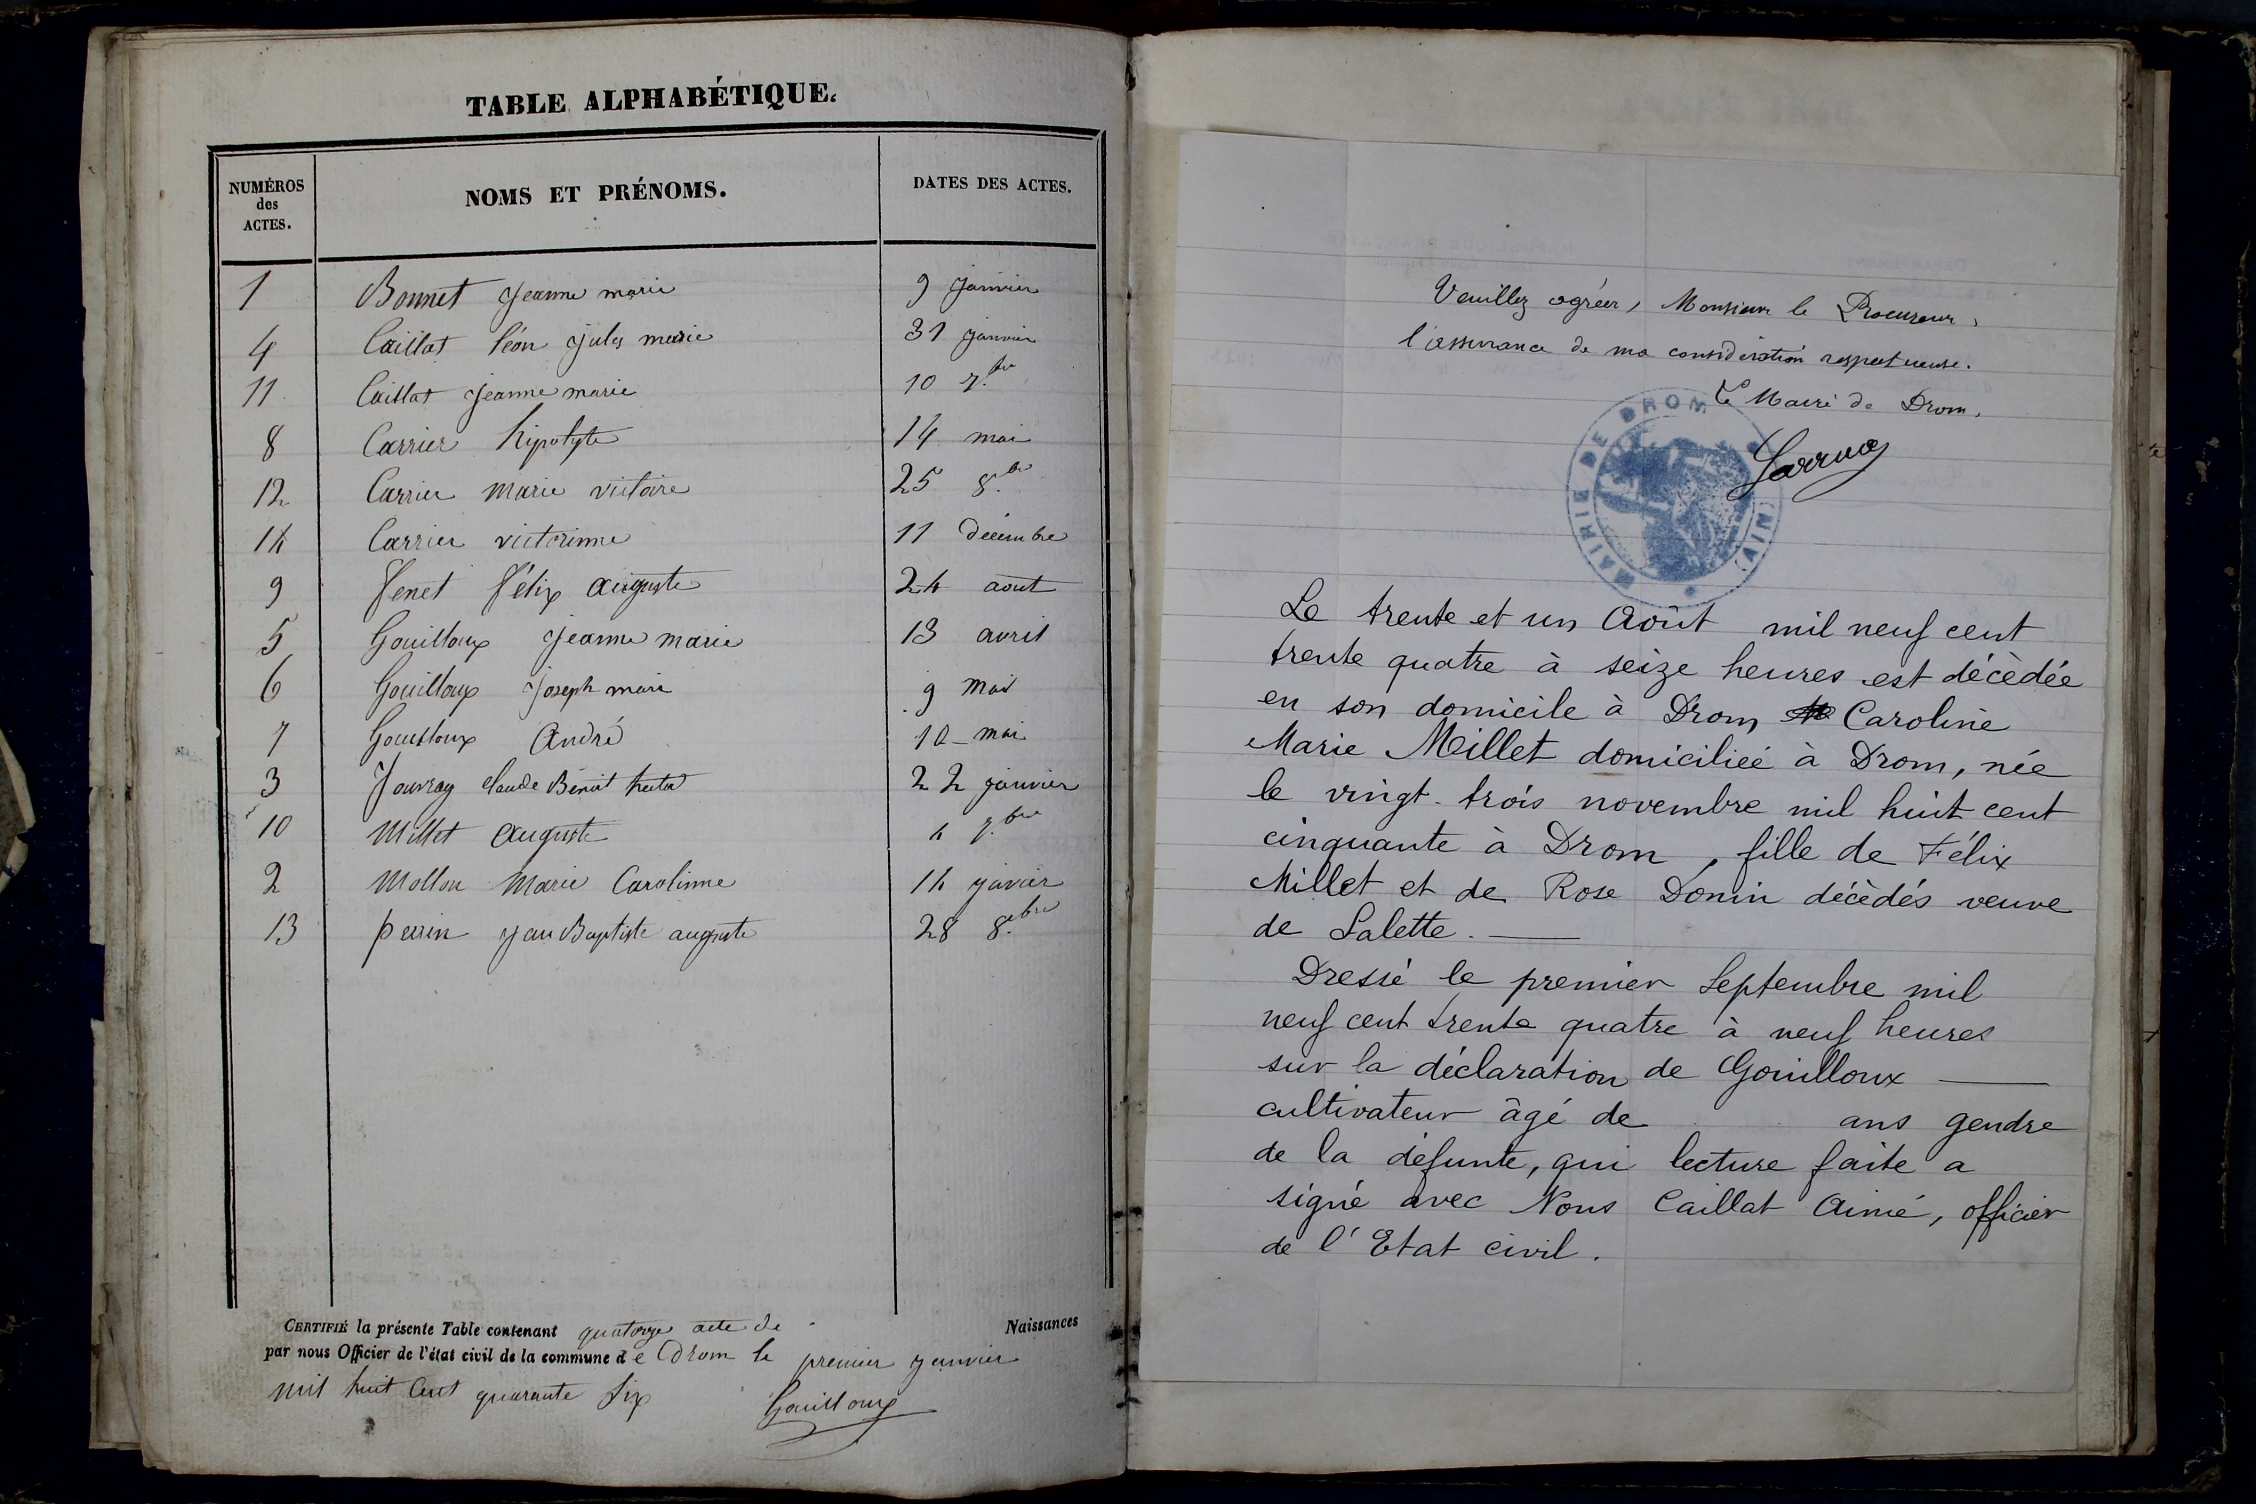 TABLE ALPHABÉTIQUE.
NUMÉROS des ACTES. NOMS ET PRÉNOMS. DATES DES ACTES.
1 Bonnet Jeanne marie 9 janvier
4 Caillat léon jules marie 31 janvier
11 Caillat jeanne marie 10 7.bre
8 Carrier hipolyte 14 mai
12 Carrier marie victoire 25 8.bre
14 Carrier victorinne 11 décembre
9 fenet félix auguste 24 aout
5 Gouilloux jeanne marie 13 avril
6 Gouilloux joseph marie 9 mai
7 Gouilloux André 10 mai
3 Jouvray claude Bénoit 22 janvier
10 Millet auguste 4 7.bre
2 Mollon Marie Carolinne 14 javier
13 perrin jean Baptiste auguste 28 8.bre
CERTIFIÉ la présente Table contenant quatorze acte de Naissances
par nous Officier de l'état civil de la commune de Drom le premier janvier
mil huit Cent quarante Six Gouilloux
Veuillez agréer, Monsieur le Procureur,
l'assurance de ma considération respectueuse.
Le Maire de Drom.
MAIRIE DE DROM (AIN)
Le trente et un Août mil neuf cent
trente quatre à seize heures est décèdée
en son domicile à Drom Caroline
Marie Millet domiciliée à Drom, née
le vingt-trois novembre mil huit cent
cinquante à Drom, fille de Félix
Millet et de Rose Donin décèdés veuve
de Lalette.
Dressé le premier Septembre mil
neuf cent trente quatre à neuf heures
sur la déclaration de Gouilloux
cultivateur âgé de ans gendre
de la défunte, qui lecture faite a
signé avec Nous Caillat Aimé, officier
de l'Etat civil.